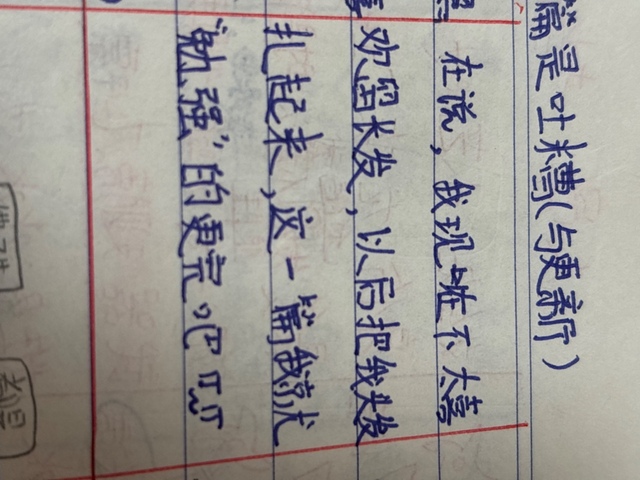 篇是吐糟(与更新)
在说,我现在不太喜
欢留长发,以后把我头发
扎起来,这一篇我就
"勉强"的更完吧 π_π